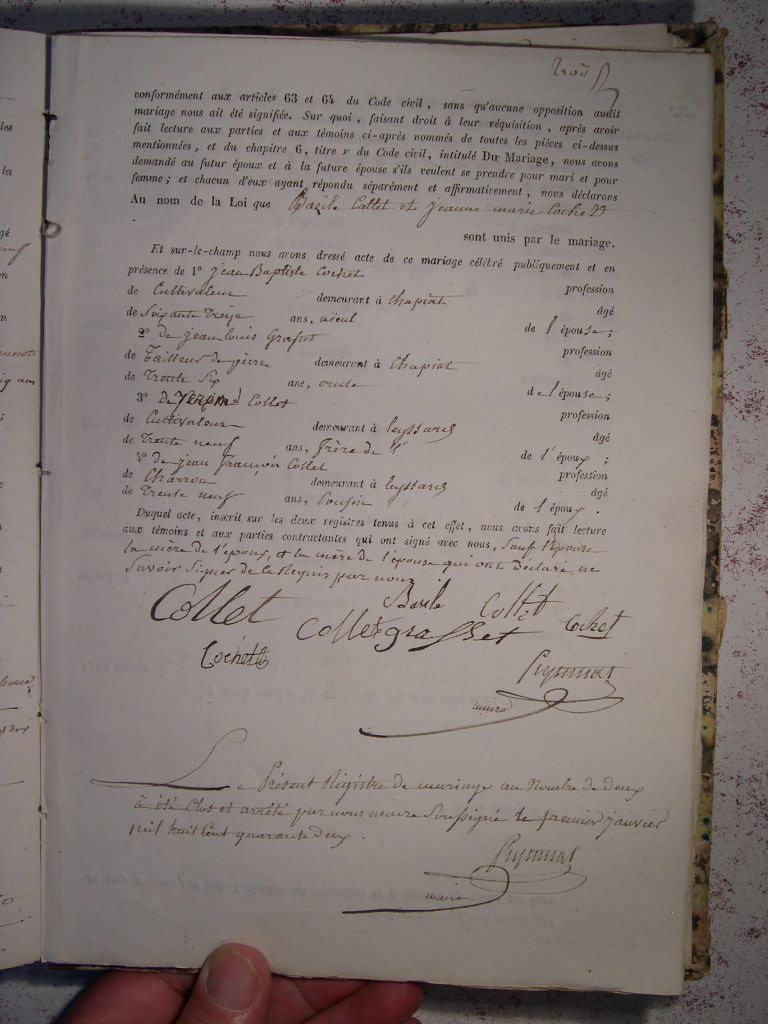 trois
conformément aux articles 63 et 64 du Code civil, sans qu'aucune opposition audit
mariage nous ait été signifiée. Sur quoi, faisant droit à leur réquisition, après avoir
fait lecture aux parties et aux témoins ci-après nommés de toutes les pièces ci-dessus
mentionnées, et du chapitre 6, titre v du Code civil, intitulé Du Mariage, nous avons
demandé au futur époux et à la future épouse s'ils veulent se prendre pour mari et pour
femme; et chacun d'eux ayant répondu séparément et affirmativement, nous déclarons
Au nom de la Loi que Bazile Collet et jeanne marie Cochet
sont unis par le mariage.
Et sur-le-champ nous avons dressé acte de ce mariage célébré publiquement et en
présence de 1° jean Baptiste Cochet profession
de Cultivateur demeurant à Chapiat âgé
de Soixante treize ans, aïeul de l'épouse;
2° de jean louis Grasset profession
de tailleur de pierre demeurant à Chapiat âgé
de trente Six ans, de l'épouse;
3° de Collet profession
de Cultivateur demeurant à leyssard âgé
de trente neuf ans, frère de l' de l'époux;
4° de jean françois Collet profession
de Charron demeurant à leyssard âgé
de trente neuf ans, Cousin de l'époux.
Duquel acte, inscrit sur les deux registres tenus à cet effet, nous avons fait lecture
aux témoins et aux parties contractantes qui ont signé avec nous, Sauf l'épouse
la mère de l'époux, et la mère de l'épouse qui ont déclaré ne
Savoir Signer de ce Requis par nous
Collet Basile Collet
Collet grasset Cochet
Cochet
maire
Le Présent Régistre de mariage au Nombre de deux
à été Clos et arrêté par nous maire Soussigné le premier janvier
mil huit Cent quarante deux.
maire